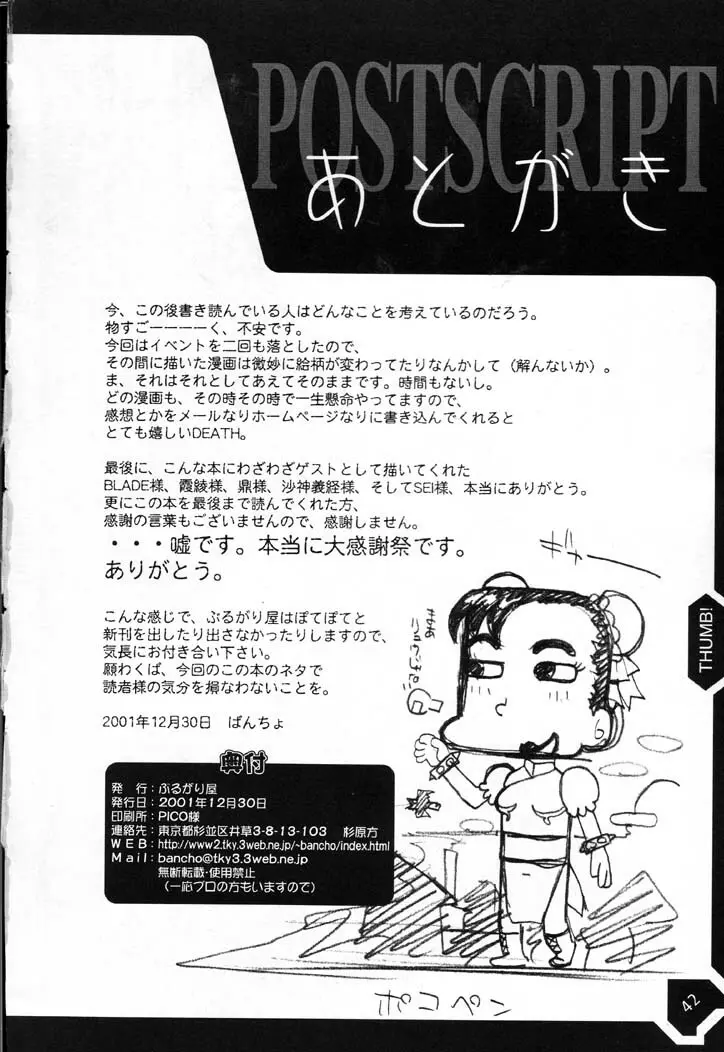 POSTSCRIPT
あとがき
今、この後書き読んでいる人はどんなことを考えているのだろう。
物すごーーーーく、不安です。
今回はイベントを二回も落としたので、
その間に描いた漫画は微妙に絵柄が変わってたりなんかして（解んないか）。
ま、それはそれとしてあえてそのままです。時間もないし。
どの漫画も、その時その時で一生懸命やってますので、
感想とかをメールなりホームページなりに書き込んでくれると
とても嬉しいDEATH。
最後に、こんな本にわざわざゲストとして描いてくれた
BLADE様、霞綾様、鼎様、沙神義経様、そしてSEI様、本当にありがとう。
更にこの本を最後まで読んでくれた方、
感謝の言葉もございませんので、感謝しません。
・・・嘘です。本当に大感謝祭です。
ありがとう。
こんな感じで、ぶるがり屋はぽてぽてと
新刊を出したり出さなかったりしますので、
気長にお付き合い下さい。
願わくば、今回のこの本のネタで
読者様の気分を損なわないことを。
2001年12月30日　ばんちょ
奥付
発　行：ぶるがり屋
発行日：2001年12月30日
印刷所：PICO様
連絡先：東京都杉並区井草3-8-13-103　杉原方
WEB：http://www2.tky.3web.ne.jp/~bancho/index.html
Mail：bancho@tky3.3web.ne.jp
無断転載・使用禁止
（一応プロの方もいますので）
THUMB!
ポコペン
42